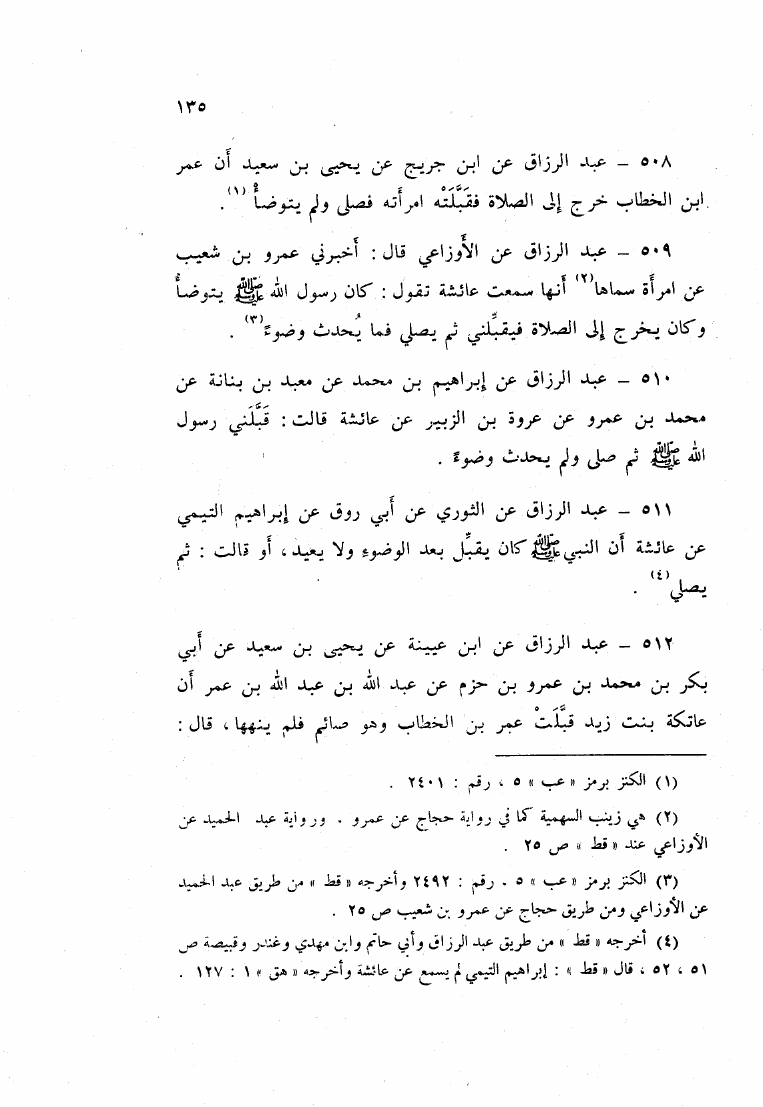 ١٣٥
٥٠٨ – عبد الرزاق عن ابن جريج عن يحيى بن سعيد أن عمر
ابن الخطاب خرج إلى الصلاة فقبَّلَتْه امرأته فصلى ولم يتوضأْ (١) .
٥٠٩ – عبد الرزاق عن الأوزاعي قال : أخبرني عمرو بن شعيب
عن امرأة سماها (٢) أنها سمعت عائشة تقول : كان رسول الله ﷺ يتوضأُ
وكان يخرج إلى الصلاة فيقبِّلني ثم يصلي فما يُحدث وضوءً (٣) .
٥١٠ – عبد الرزاق عن إبراهيم بن محمد عن معبد بن بنانة عن
محمد بن عمرو عن عروة بن الزبير عن عائشة قالت : قَبَّلَني رسول
الله ﷺ ثم صلى ولم يحدث وضوءً .
٥١١ – عبد الرزاق عن الثوري عن أبي روق عن إبراهيم التيمي
عن عائشة أن النبي ﷺ كان يقبِّل بعد الوضوءِ ولا يعيد ، أو قالت : ثم
يصلي (٤) .
٥١٢ – عبد الرزاق عن ابن عيينة عن يحيى بن سعيد عن أبي
بكر بن محمد بن عمرو بن حزم عن عبد الله بن عبد الله بن عمر أن
عاتكة بنت زيد قبَّلَتْ عمر بن الخطاب وهو صائم فلم ينهها ، قال :
(١) الكنز برمز « عب » ٥ ، رقم : ٢٤٠١ .
(٢) هي زينب السهمية كما في رواية حجاج عن عمرو . ورواية عبد الحميد عن
الأوزاعي عند « قط » ص ٢٥ .
(٣) الكنز برمز « عب » ٥ . رقم : ٢٤٩٢ وأخرجه « قط » من طريق عبد الحميد
عن الأوزاعي ومن طريق حجاج عن عمرو بن شعيب ص ٢٥ .
(٤) أخرجه « قط » من طريق عبد الرزاق وأبي حاتم وابن مهدي وغندر وقبيصة ص
٥١ ، ٥٢ ، قال « قط » : إبراهيم التيمي لم يسمع عن عائشة وأخرجه « هق » ١ : ١٢٧ .